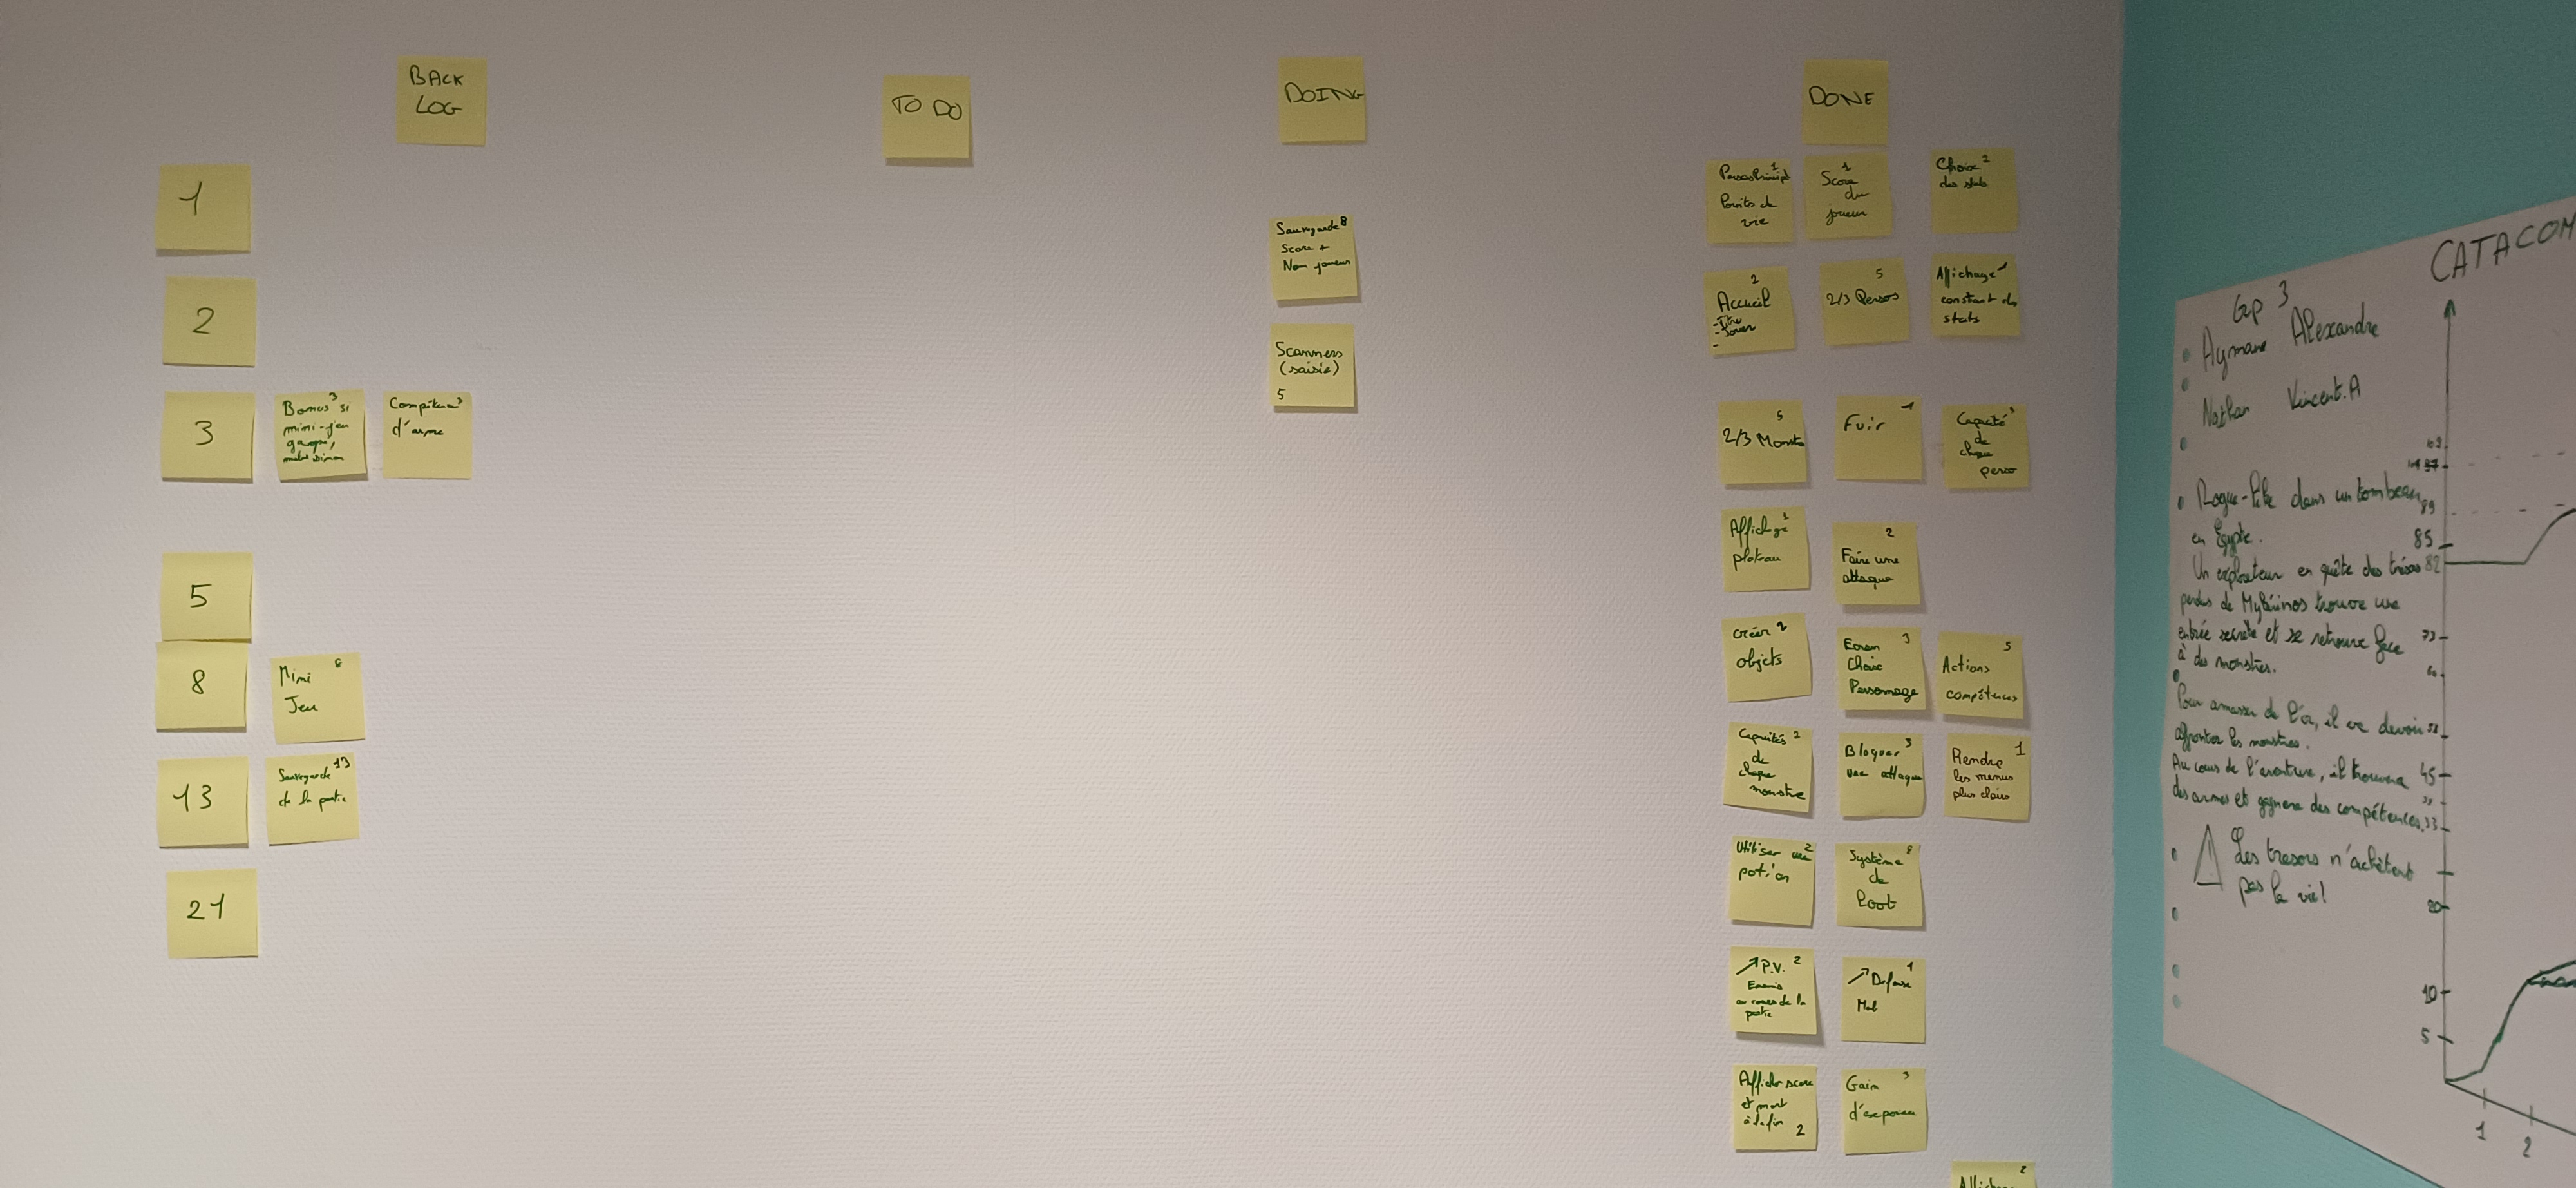 BACK
LOG
TO DO
DOING
DONE
1
2
3
Bonus 3 si
mini-jeu
gagné,
malus sinon
Compétence 3
d'arme
5
8
Mini 8
Jeu
13
Sauvegarde 13
de la partie
21
Sauvegarde 8
Score +
Nom joueur
Scanners
(saisie)
5
1
Points de
vie
1
Score
du
joueur
Choix 2
des stats
2
Accueil
- Titre
- Jouer
-
5
2/3 Persos
Affichage 1
constant des
stats
5
2/3 Monstre
1
Fuir
Capacité
de
chaque
perso
1
Affichage
plateau
2
Faire une
attaque
créer 2
objets
Ecran 3
Choix
Personnage
5
Actions
compétences
Capacités 2
de
chaque
monstre
Bloquer 3
une attaque
Rendre 1
les menus
plus clairs
Utiliser une 2
potion
Système 8
de
loot
↗ P.V. 2
Ennemis
au cours de la
partie
↗ Défense 1
Afficher score
et mort
à la fin
2
Gain 3
2
CATACOM
Gp 3
Aymane Alexandre
Nathan Vincent.A
Rogue-like dans un tombeau
en Egypte.
Un explorateur en quête des trésors
perdus de Mykérinos trouve une
entrée secrète et se retrouve face
à des monstres.
Pour amasser de l'or, il va devoir
affronter les monstres.
Au cours de l'aventure, il trouvera
des armes et gagnera des compétences.
Les tresors n'achètent
pas la vie!
89
85
82
73
45
33
20
10
5
1
2